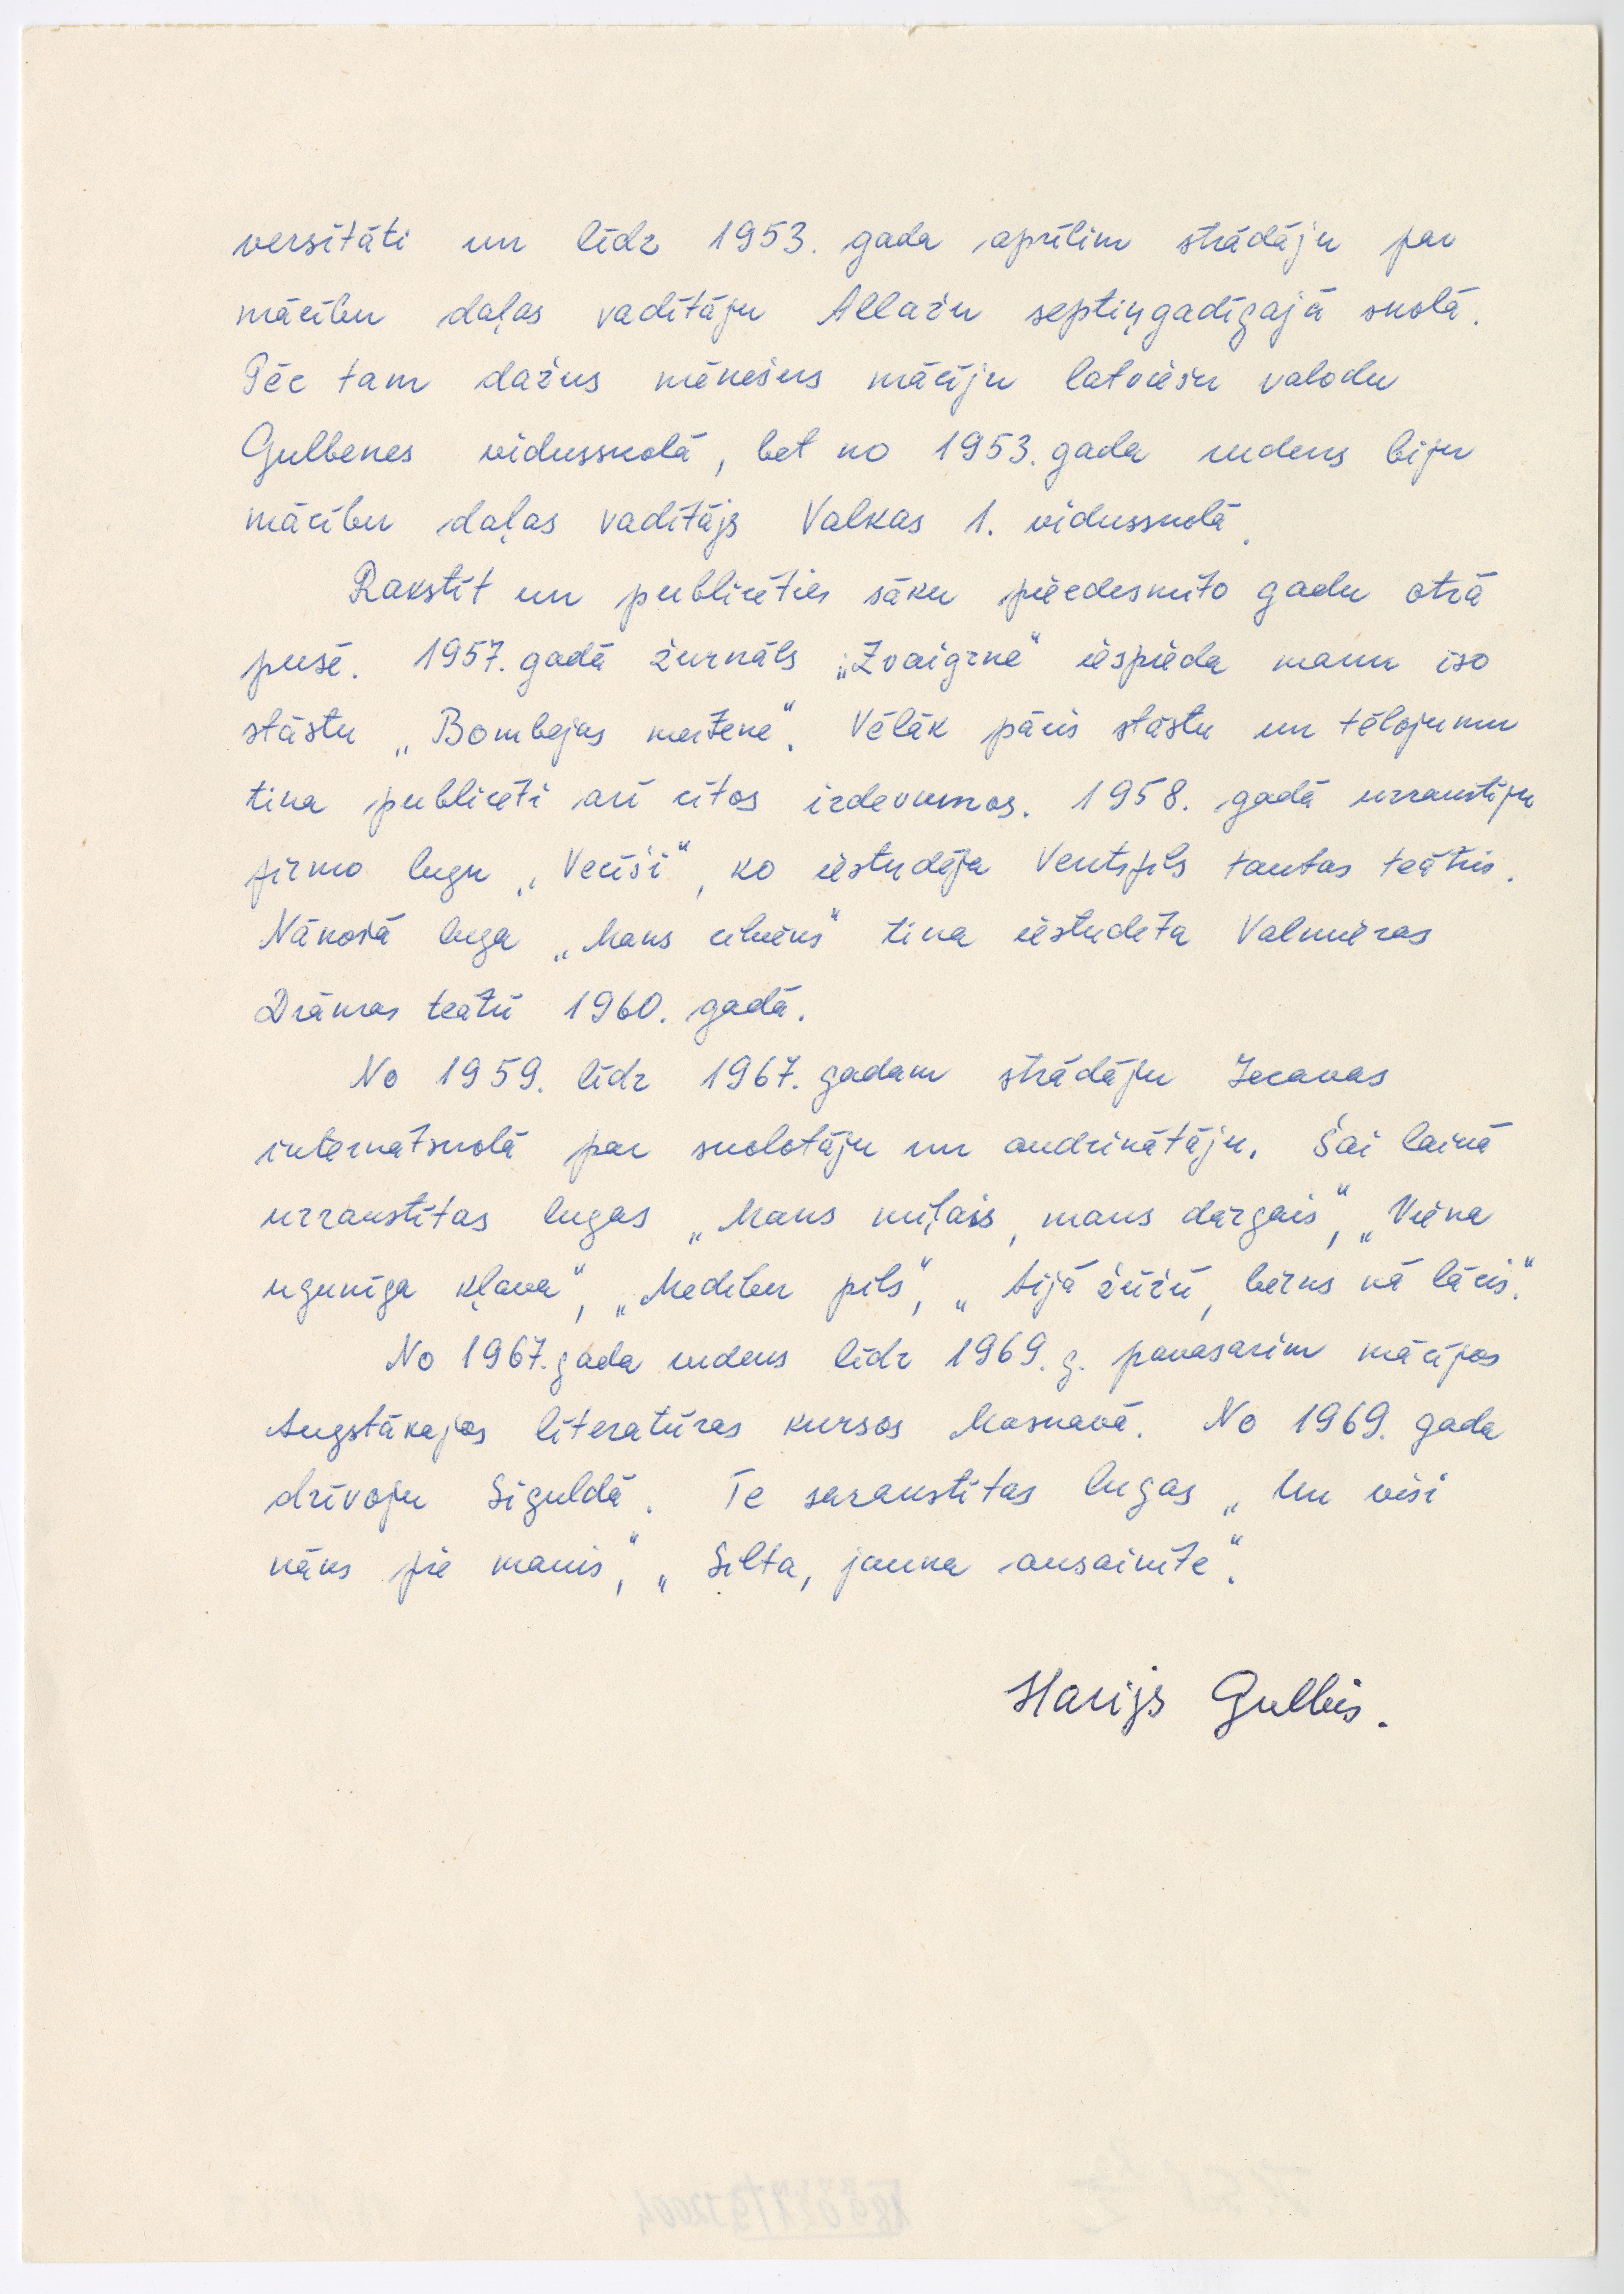 versitāti un līdz 1953. gada aprīlim strādāju par
mācību daļas vadītāju Allažu septiņgadīgajā skolā.
Pēc tam dažus mēnešus mācīju latviešu valodu
Gulbenes vidusskolā, bet no 1953. gada rudens biju
mācību daļas vadītājs Valkas 1. vidusskolā.
Rakstīt un publicēties sāku piecdesmito gadu otrā
pusē. 1957. gadā žurnāls „Zvaigzne" iespieda manu īso
stāstu „Bombejas meitene". Vēlāk pāris stāstu un tēlojumu
tika publicēti arī citos izdevumos. 1958. gadā uzrakstīju
pirmo lugu „Vecīši", ko iestudēja Ventspils tautas teātris.
Nākošā luga „Mans cilvēks" tika iestudēta Valmieras
Drāmas teātrī 1960. gadā.
No 1959. līdz 1967. gadam strādāju Iecavas
internātskolā par skolotāju un audzinātāju. Šai laikā
uzrakstītas lugas „Mans mīļais, mans dārgais", „Viena
ugunīga kļava", „Medību pils", „Aijā žūžū, bērns kā lācis".
No 1967. gada rudens līdz 1969. g. pavasarim mācījos
Augstākajos literatūras kursos Maskavā. No 1969. gada
dzīvoju Siguldā. Te sarakstītas lugas „Un visi
nāks pie manis", „Silta, jauka ausainīte".
Harijs Gulbis.